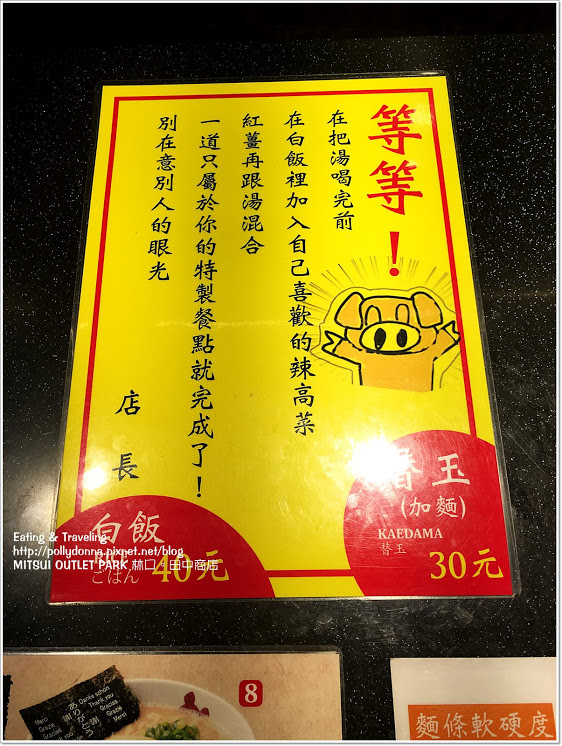 等等！
在把湯喝完前
在白飯裡加入自己喜歡的辣高菜
紅薑再跟湯混合
一道只屬於你的特製餐點就完成了！
別在意別人的眼光
店長
替玉
(加麵)
KAEDAMA
替玉
30元
白飯
RICE
ごはん
40元
Eating & Traveling
http://pollydonna.pixnet.net/blog
MITSUI OUTLET PARK 林口。田中商店
8
Danke schön
Thank you
Gracias
Merci
Grazie
ありがとう
謝謝
麵條軟硬度